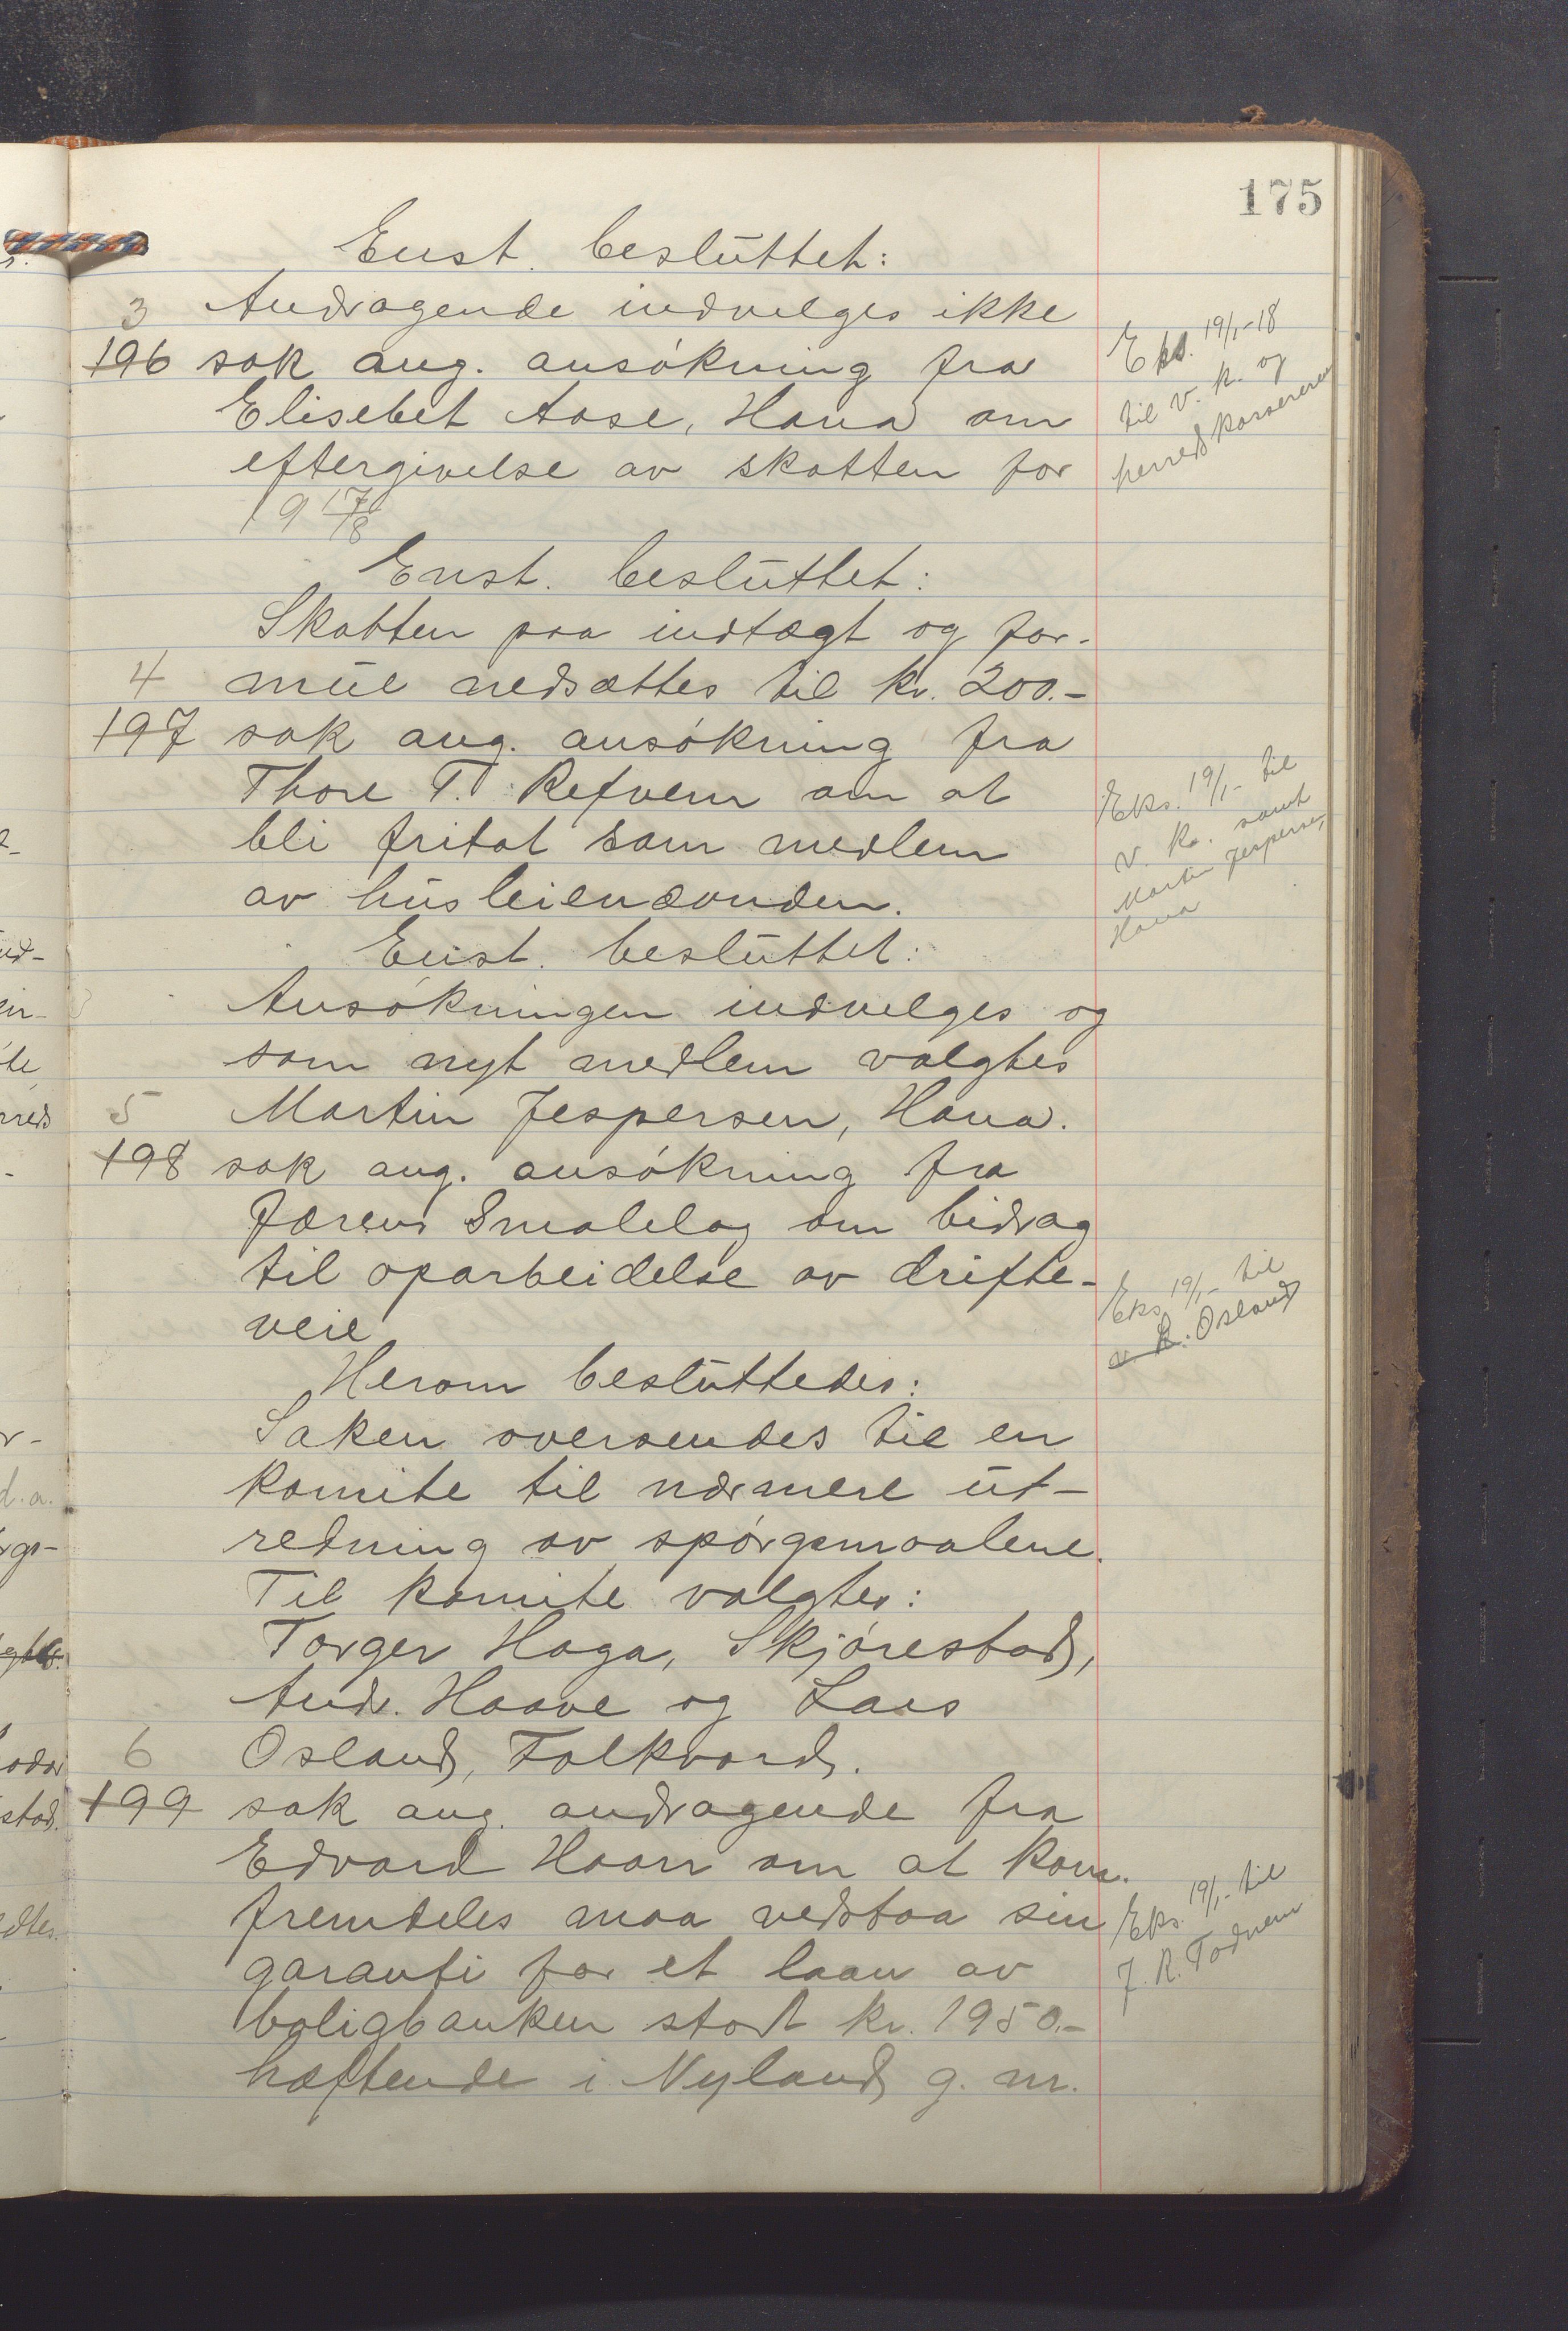 175
Enst. besluttet:
Andragende indvilges ikke
3
196 sak ang. ansökning fra
Elisebet Aase, Hana om
eftergivelse av skatten for
1917/18
Eks. 19/1-18
til v. k. og
herredskassereren
Enst. besluttet:
Skatten paa indtægt og for-
4 mue nedsættes til kr. 200.-
197 sak ang. ansökning fra
Thore T. Refvem om at
bli fritat som medlem
av husleienævnden.
Eks. 19/1- til
v. k. samt
Martin Jespersen,
Hana
Enst. besluttet:
Ansökningen indvilges og
som nyt medlem valgtes
5 Martin Jespersen, Hana.
198 sak ang. ansökning fra
Jærens Smalelag om bidrag
til oparbeidelse av drifte-
veie
Eks 19/1- til
v. k. Osland
Herom besluttedes:
Saken oversendes til en
komite til nærmere ut-
redning av spörgsmaalene.
Til komite valgtes:
Torger Haga, Skjörestad,
Andr. Haave og Lars
6 Osland, Folkvord.
199 sak ang. andragende fra
Edvard Haarr om at kom.
fremdeles maa vedstaa sin
garanti for et laan av
boligbanken stort kr. 1950.-
hæftende i Nyland g. nr.
Eks. 19/1- til
J. R. Todnem